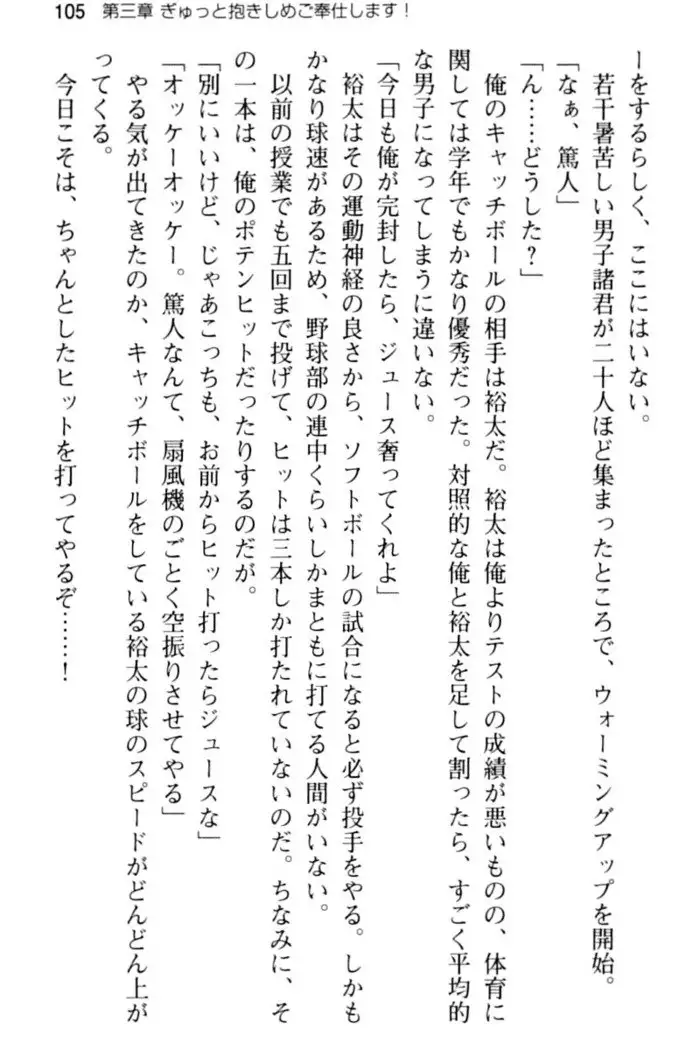 105 第三章 ぎゅっと抱きしめご奉仕します!
ーをするらしく、ここにはいない。
若干暑苦しい男子諸君が二十人ほど集まったところで、ウォーミングアップを開始。
「なぁ、篤人」
「ん……どうした?」
俺のキャッチボールの相手は裕太だ。裕太は俺よりテストの成績が悪いものの、体育に
関しては学年でもかなり優秀だった。対照的な俺と裕太を足して割ったら、すごく平均的
な男子になってしまうに違いない。
「今日も俺が完封したら、ジュース奢ってくれよ」
裕太はその運動神経の良さから、ソフトボールの試合になると必ず投手をやる。しかも
かなり球速があるため、野球部の連中くらいしかまともに打てる人間がいない。
以前の授業でも五回まで投げて、ヒットは三本しか打たれていないのだ。ちなみに、そ
の一本は、俺のポテンヒットだったりするのだが。
「別にいいけど、じゃあこっちも、お前からヒット打ったらジュースな」
「オッケーオッケー。篤人なんて、扇風機のごとく空振りさせてやる」
やる気が出てきたのか、キャッチボールをしている裕太の球のスピードがどんどん上が
ってくる。
今日こそは、ちゃんとしたヒットを打ってやるぞ……!